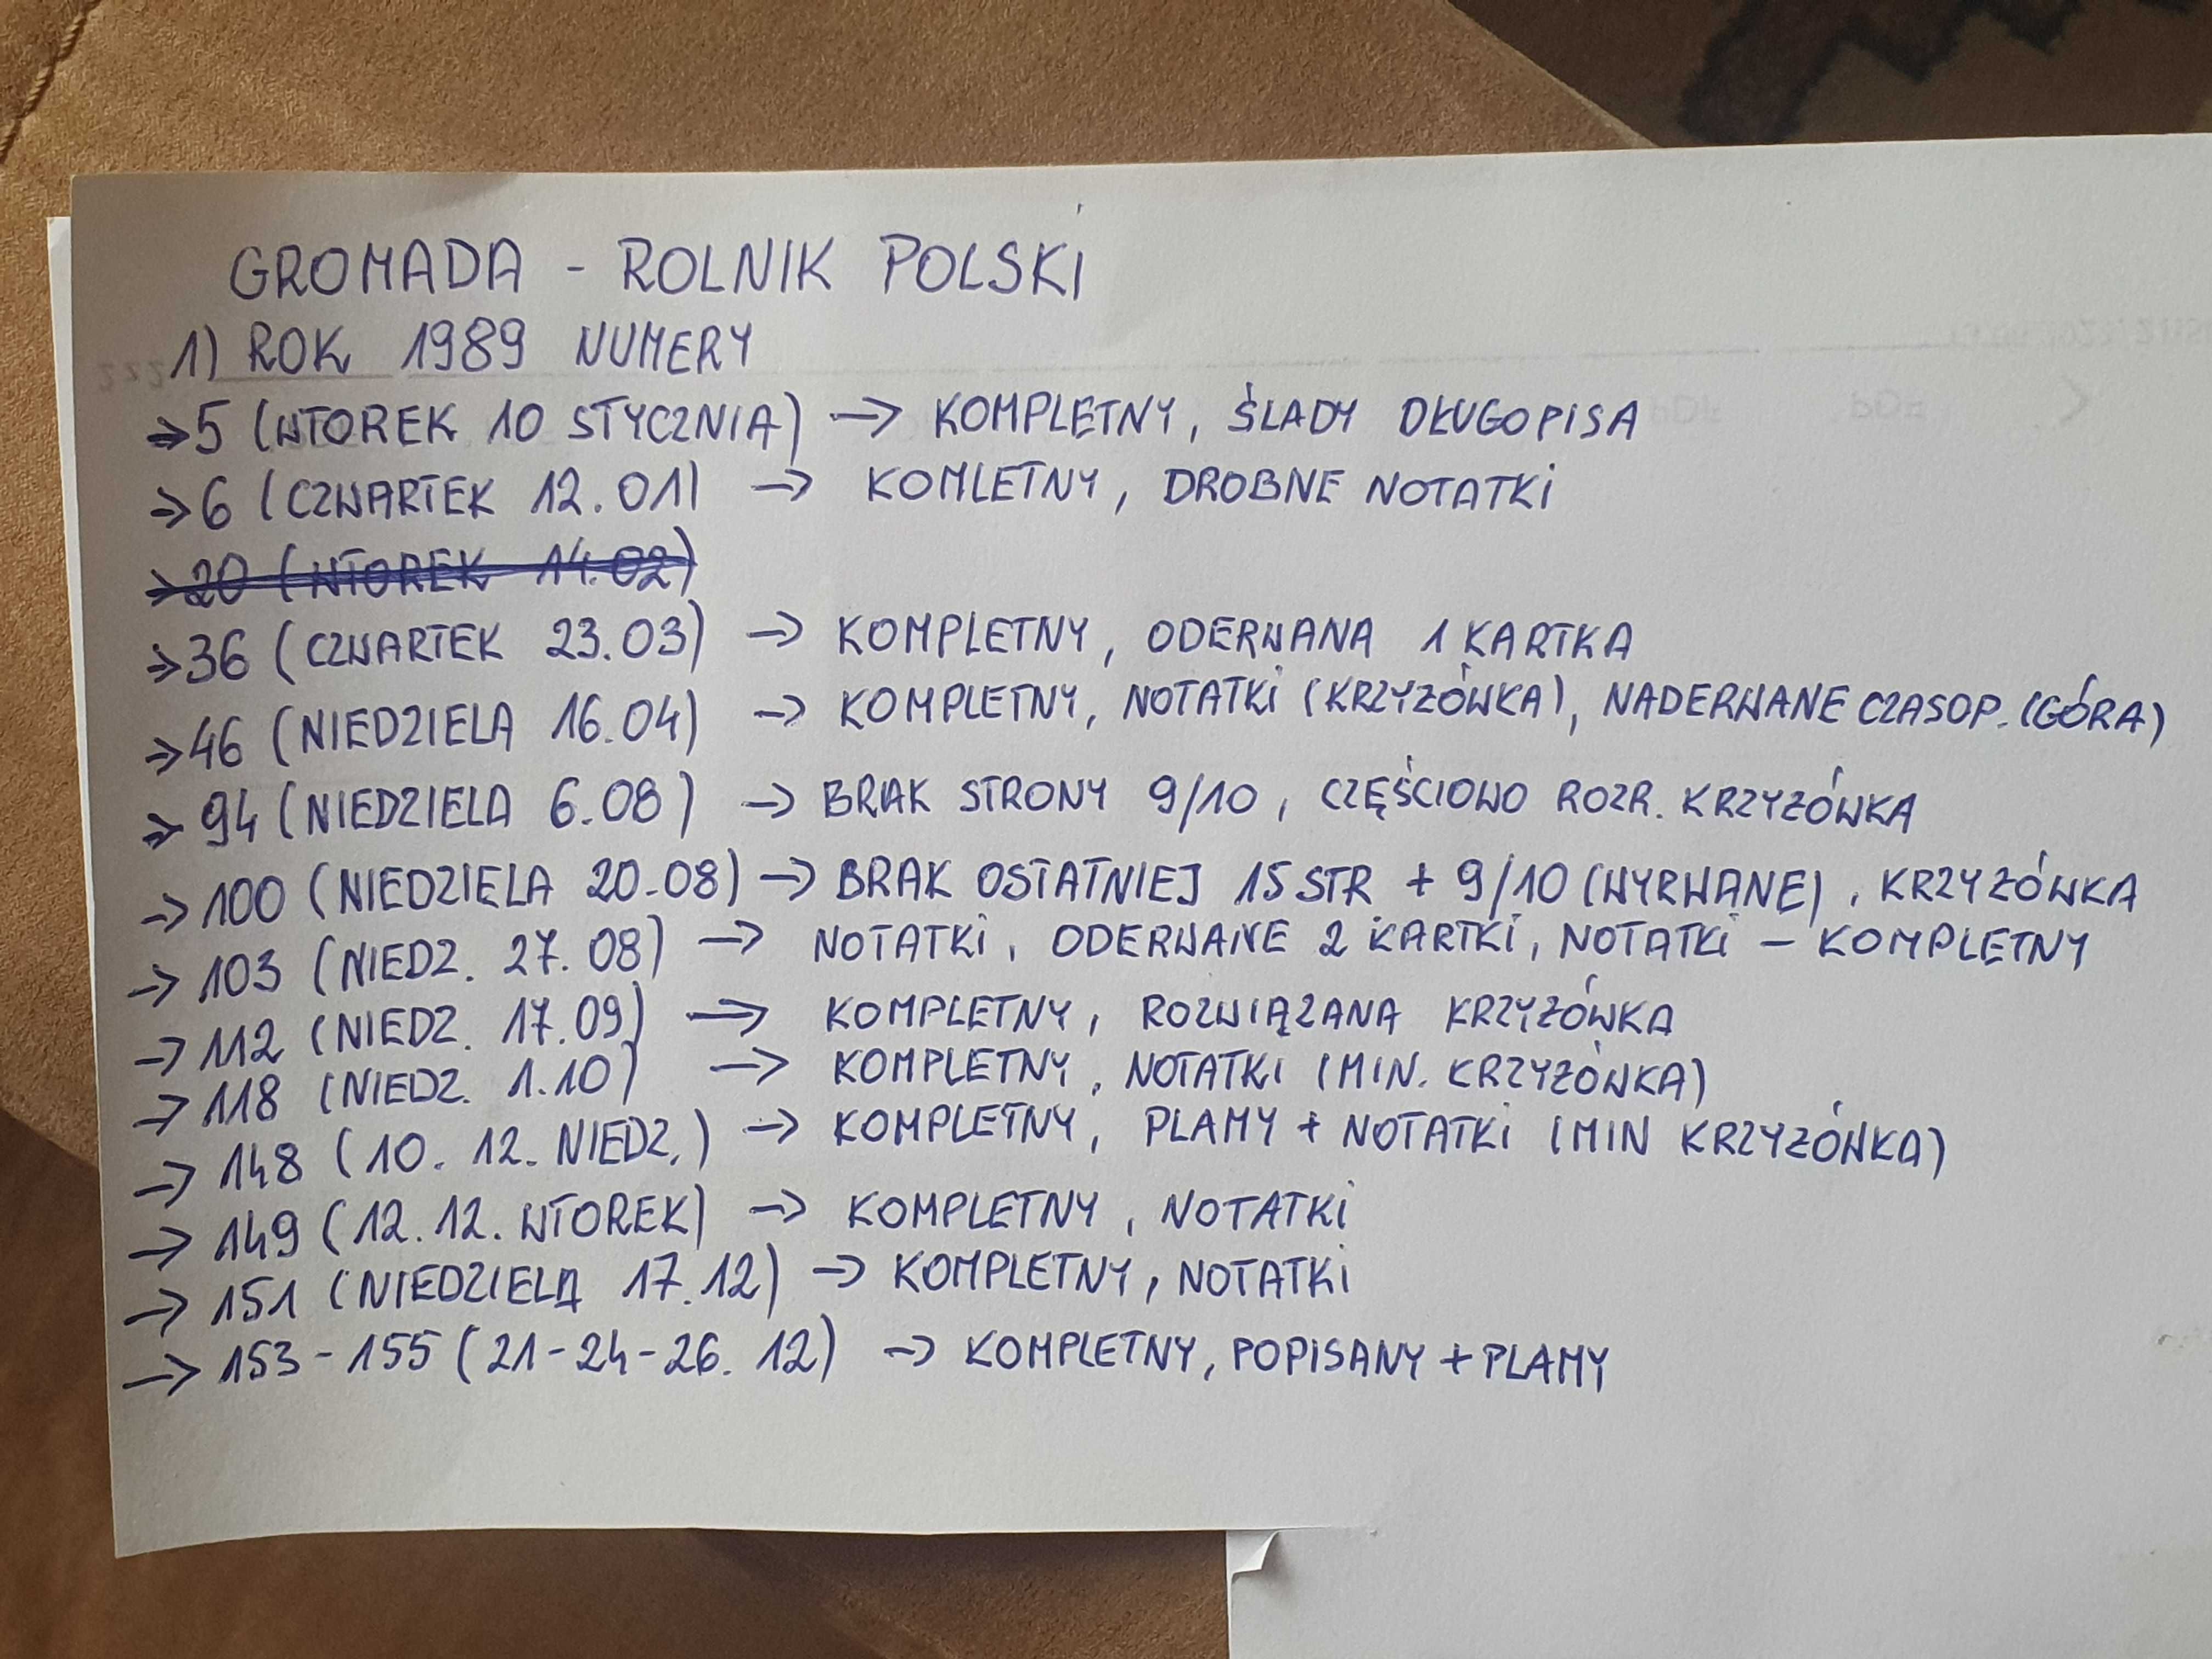 GROMADA - ROLNIK POLSKI
1) ROK 1989 NUMERY
→ 5 (WTOREK 10 STYCZNIA) → KOMPLETNY, ŚLADY DŁUGOPISA
→ 6 (CZWARTEK 12.01) → KOMLETNY, DROBNE NOTATKI
→ 20 (WTOREK 14.02)
→ 36 (CZWARTEK 23.03) → KOMPLETNY, ODERWANA 1 KARTKA
→ 46 (NIEDZIELA 16.04) → KOMPLETNY, NOTATKI (KRZYZÓWKA), NADERWANE CZASOP. (GÓRA)
→ 94 (NIEDZIELA 6.08) → BRAK STRONY 9/10, CZĘŚCIOWO ROZR. KRZYZÓWKA
→ 100 (NIEDZIELA 20.08) → BRAK OSTATNIEJ 15 STR + 9/10 (WYRWANE), KRZYZÓWKA
→ 103 (NIEDZ. 27.08) → NOTATKI, ODERWANE 2 KARTKI, NOTATKI - KOMPLETNY
→ 112 (NIEDZ. 17.09) → KOMPLETNY, ROZWIĄZANA KRZYZÓWKA
→ 118 (NIEDZ. 1.10) → KOMPLETNY, NOTATKI (MIN. KRZYZÓWKA)
→ 148 (10.12. NIEDZ.) → KOMPLETNY, PLAMY + NOTATKI (MIN KRZYZÓWKA)
→ 149 (12.12. WTOREK) → KOMPLETNY, NOTATKI
→ 151 (NIEDZIELA 17.12) → KOMPLETNY, NOTATKI
→ 153-155 (21-24-26.12) → KOMPLETNY, POPISANY + PLAMY